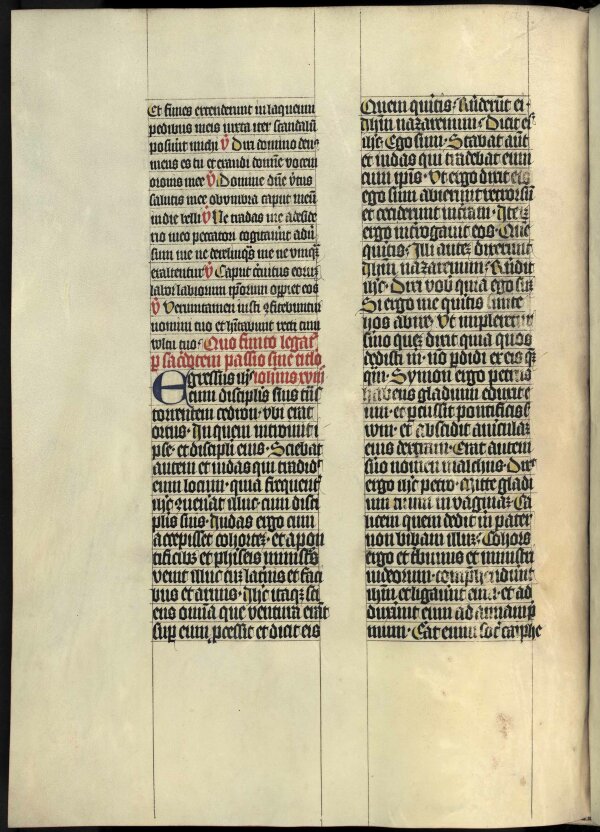 Et funes extenderunt in laqueum
pedibus meis iuxta iter scandalū
posuūt michi ℣ Dixi domino deus
meus es tu exaudi domīe vocem
orōnis mee ℣ Domine dn̄e v̓tus
salutis mee obumbra caput meū
in die belli ℣ Ne tradas me a deside
rio meo peccatori cogitaverūt adū
sum me ne derelinqͣs me ne vnqͣꝫ
exaltentur ℣ Caput circuitus eorū
labor labiorum ip̄orum opiet eos
℣ Verumtamen iusti ꝯfitebuntur
nomini tuo et hītabunt recti cum
vultu tuo · Quo finito legat᷑
p̱ sacerdotem passio sine titlo
Egressus ihc̄ iohannis xviii
cum discipulis suis trās
torrentem cedron · vbi erat
ortus · In quem introivit i
pse · et discipuli eius · Sciebat
autem et iudas qui tradidit
eum locum · quia frequent᷑
ihc̄ ꝯuenerat illuc · cum disci
pulis suis · Iudas ergo cum
accepisset cohortē · et a pon
tificibꝫ et phariseis ministros
venit illuc cum lat̓nis et faci
bus et armis · Ihc̄ itaqꝫ sci
ens omīa que ventura erāt
sup̱ eum p̱cessit et dicit eis
Quem queritis · Rn̄derūt ei ·
ihm̄ nazarenum · Dicit eis
ihc̄ · Ego sum · Stabat aūt
et iudas qui tradebat eum
cum ipis · Ut ergo dixit eis
ego sum abierunt retrorsū
et ceciderunt in terram · Iteꝝ
ergo interrogavit eos · Quē
queritis · Illi autem dixerunt
ihm̄ nazarenum · Rn̄dit
ihc̄ · Dixi vob̄ quia ego sū
Si ergo me queritis sinite
hos abire · Ut impleretur
sermo quē dixit quia quos
dedisti m̄ · nō p̱didi ex eis qͣꝫ
qͣm · Symon ergo petrus
habens gladium eduxit e
um · et percussit pontificis s̄
vum · et abscidit auriculā
eius dextram · Erat autem
servo nomen malchus · Dix̄
ergo ihc̄ petro · Mitte gladi
um tuum in vaginā · Ca
licem quem dedit m̄ pater
non bibam illum · Cohors
ergo et tribunus et ministri
iudeorum · comprehenderunt
ihm̄ et ligaverunt eum · et ad
duxerunt eum ad annam p̱
mum · Erat enim socer cayphe